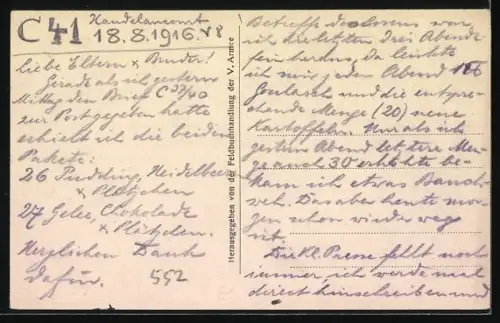 C 41
Handelancourt
18.8.1916. V8
Liebe Eltern & Bruder!
Gerade als ich gestern
Mittag den Brief C 39/40
zur Post gegeben hatte
erhielt ich die beiden
Pakete:
26 Pudding, Heidelbeer
& Plätzchen
27 Gelee, Chokolade
& Plätzchen.
Herzlichen Dank
dafür.
552
Herausgegeben von der Feldbuchhandlung der V. Armee
Betreffs des Essens war
ich die letzten drei Abende
fein heraus, da leistete
ich mir jeden Abend
Goulasch und die entspre-
chende Menge (20) neue
Kartoffeln. Nur als ich
gestern Abend letztere Men-
ge auch 30 erhöhte be-
kam ich etwas Bauch-
weh. Das aber heute mor-
gen schon wieder weg
ist.
Die Kl. Presse fehlt noch
immer, ich werde mal
direkt hinschreiben und